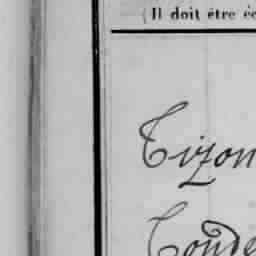 (Il doit être éc
Tizon
Conde